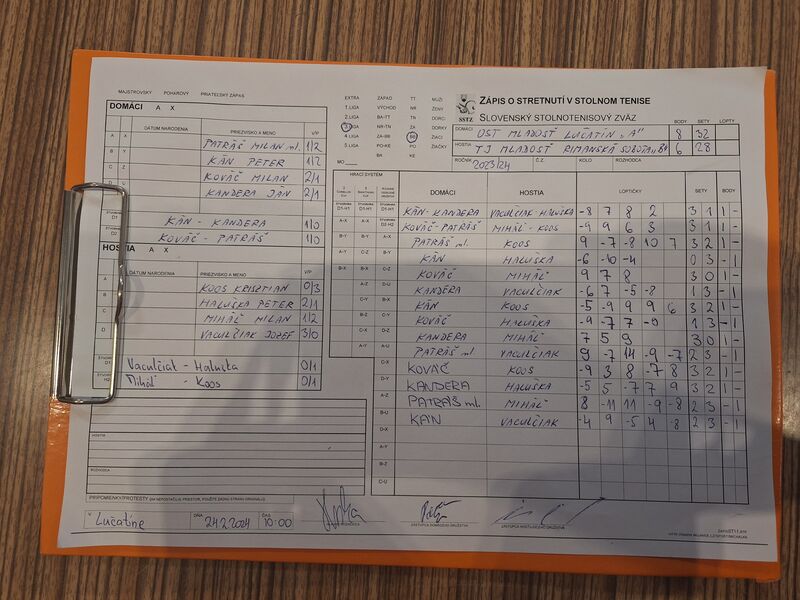 MAJSTROVSKÝ POHÁROVÝ PRIATEĽSKÝ ZÁPAS
DOMÁCI A X
DÁTUM NARODENIA PRIEZVISKO A MENO V/P
A X PATRÁŠ MILAN ml. 1/2
B Y KÁN PETER 1/2
C Z KOVÁČ MILAN 2/1
KANDERA JÁN 2/1
D1 KÁN - KANDERA 1/0
D2 KOVÁČ - PATRÁŠ 1/0
HOSTIA A X
DÁTUM NARODENIA PRIEZVISKO A MENO V/P
A KOOS KRISTIAN 0/3
B HALUŠKA PETER 2/1
C MIHÁĽ MILAN 1/2
D VACULČIAK JOZEF 3/0
Vaculčiak - Haluška 0/1
H2 Miháľ - Koos 0/1
HOSTIA
ROZHODCA
PRIPOMIENKY/PROTESTY (AK NEPOSTAČUJE PRIESTOR, POUŽITE ZADNÚ STRANU ORIGINÁLU)
V Lučatíne DŇA 24.2.2024 ČAS 10:00
EXTRA ZÁPAD TT MUŽI
1. LIGA VÝCHOD NR ŽENY
2. LIGA BA-TT TN DORCI
3. LIGA NR-TN ZA DORKY
4. LIGA ZA-BB BB ŽIACI
5. LIGA PO-KE PO ŽIAČKY
BA KE
MO
SSTZ
ZÁPIS O STRETNUTÍ V STOLNOM TENISE
SLOVENSKÝ STOLNOTENISOVÝ ZVÄZ
BODY SETY LOPTY
DOMÁCI OŠT MLADOSŤ LUČATÍN „A" 8 32
HOSTIA TJ MLADOSŤ RIMAVSKÁ SOBOTA „B" 6 28
ROČNÍK 2023/24 Č.Z. KOLO ROZHODCA
HRACÍ SYSTÉM
DOMÁCI HOSTIA LOPTIČKY SETY BODY
D1-H1 KÁN-KANDERA VACULČIAK-HALUŠKA -8 7 8 2 3 1 1 -
KOVÁČ-PATRÁŠ MIHÁĽ-KOOS -9 9 6 3 3 1 1 -
PATRÁŠ ml. KOOS 9 -7 -8 10 7 3 2 1 -
KÁN HALUŠKA -6 -10 -4 0 3 - 1
KOVÁČ MIHÁĽ 9 7 8 3 0 1 -
KANDERA VACULČIAK -6 7 -5 -8 1 3 - 1
KÁN KOOS -5 -9 9 9 6 3 2 1 -
KOVÁČ HALUŠKA -9 -7 7 -9 1 3 - 1
KANDERA MIHÁĽ 7 5 9 3 0 1 -
PATRÁŠ ml. VACULČIAK 9 -7 14 -9 -7 2 3 - 1
C-X KOVÁČ KOOS -9 3 8 -7 8 3 2 1 -
D-Y KANDERA HALUŠKA -5 5 -7 7 9 3 2 1 -
A-Z PATRÁŠ ml. MIHÁĽ 8 -11 11 -9 -8 2 3 - 1
B-U
D-X KÁN VACULČIAK -4 9 -5 4 -8 2 3 - 1
A-Y
B-Z
C-U
ROZHODCA ZÁSTUPCA DOMÁCEHO DRUŽSTVA ZÁSTUPCA HOSŤUJÚCEHO DRUŽSTVA